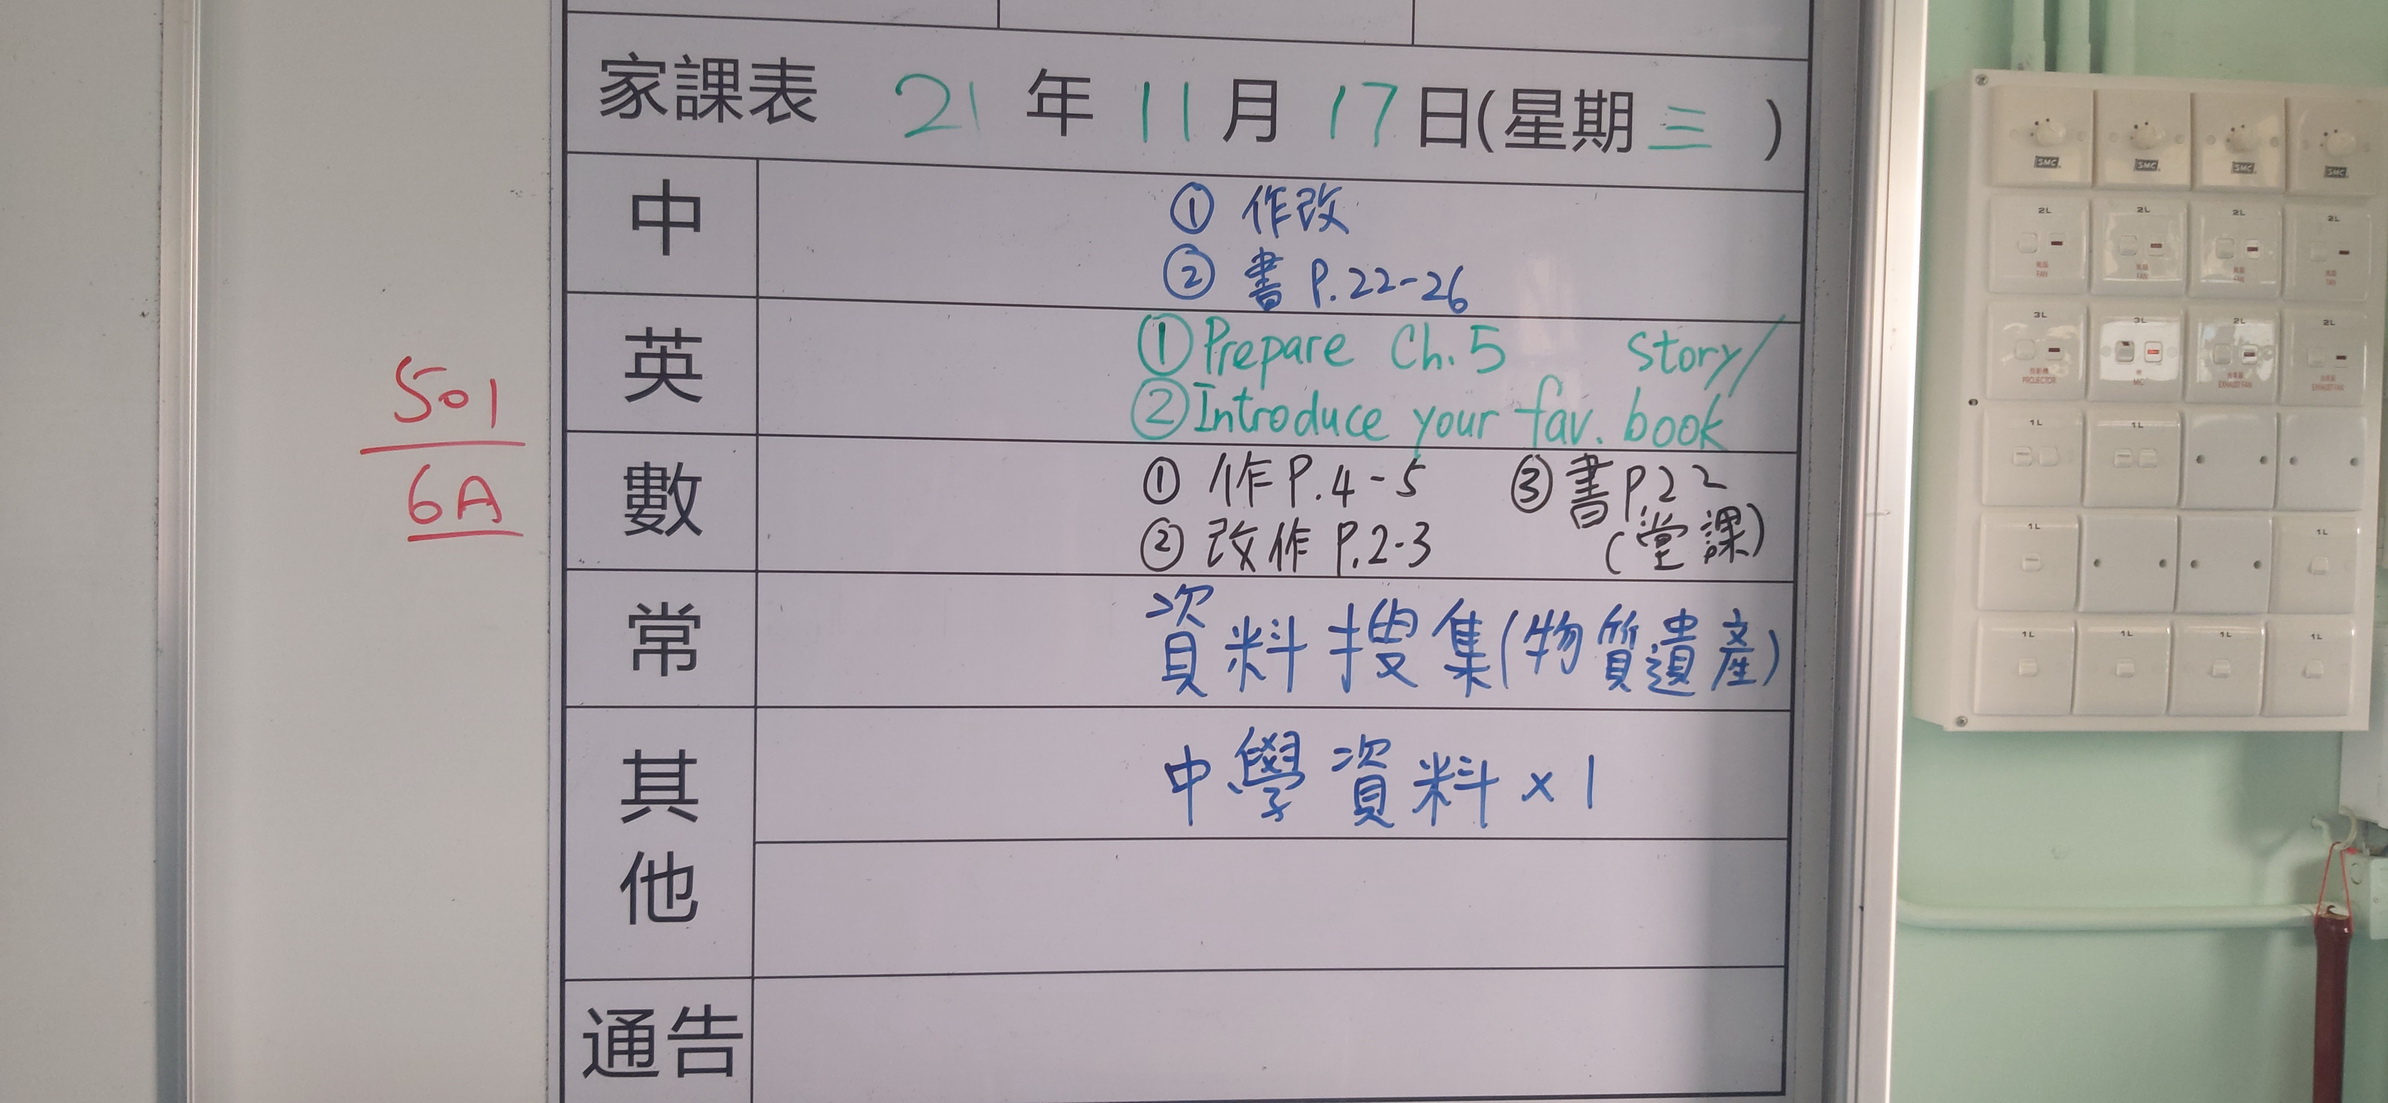 家課表 21 年 11 月 17 日(星期 三 )
中
① 作改
② 書 P.22-26
英
① Prepare Ch.5 story/
② Introduce your fav. book
數
① 作 P.4-5 ③ 書 P.22
② 改作 P.2-3 (堂課)
常
資料搜集(物質遺產)
其他
中學資料 x 1
通告
501
6A
SMC SMC SMC SMC
2L 2L 2L 2L
FAN FAN FAN FAN
3L 3L 2L 2L
PROJECTOR MIC EXHAUST FAN EXHAUST FAN
1L 1L
1L 1L
1L 1L 1L 1L